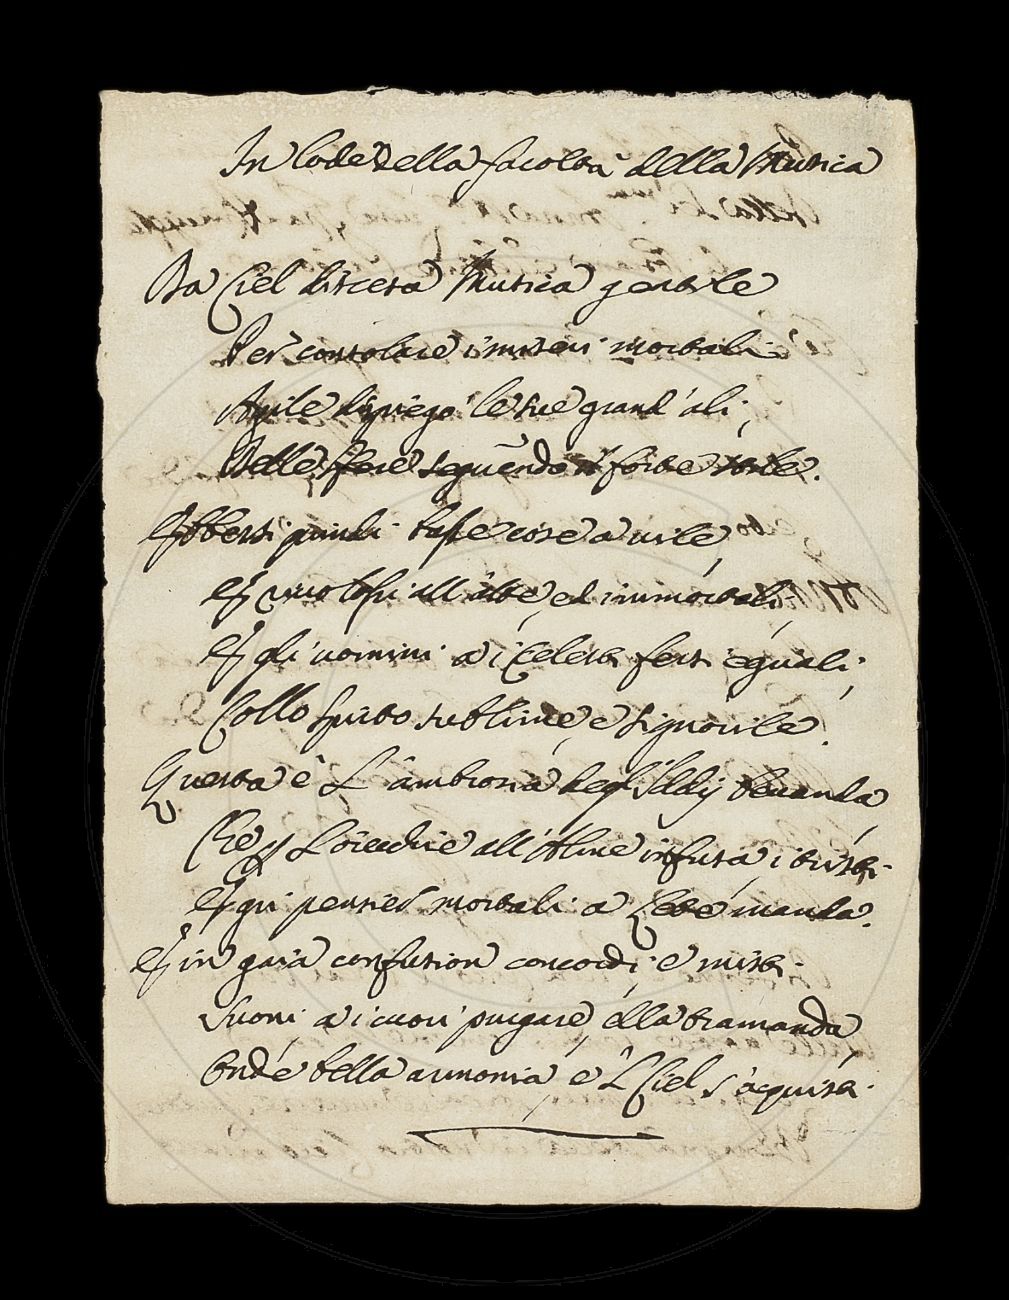 In lode della facoltà della Musica
Da Ciel discesa Musica gentile
Per consolare i miseri mortali
Agile dispiegò le sue grand' ali,
Delle sfere seguendo
Ebbersi quindi basse cose a vile,
E vuolsi all' alte, ed immortali,
E gli uomini a i Celesti fersi eguali,
Collo spirto sublime e signorile.
Questa è l' ambrosia degl' Iddij bevanda,
Che all' Alme infusa, i tristi
Egri pensier mortali a Lete manda.
E in gaia confusion concordi e misti
Suoni a i cuori purgare, ella tramanda,
Onde bella armonia, e 'l Ciel s' aquista.